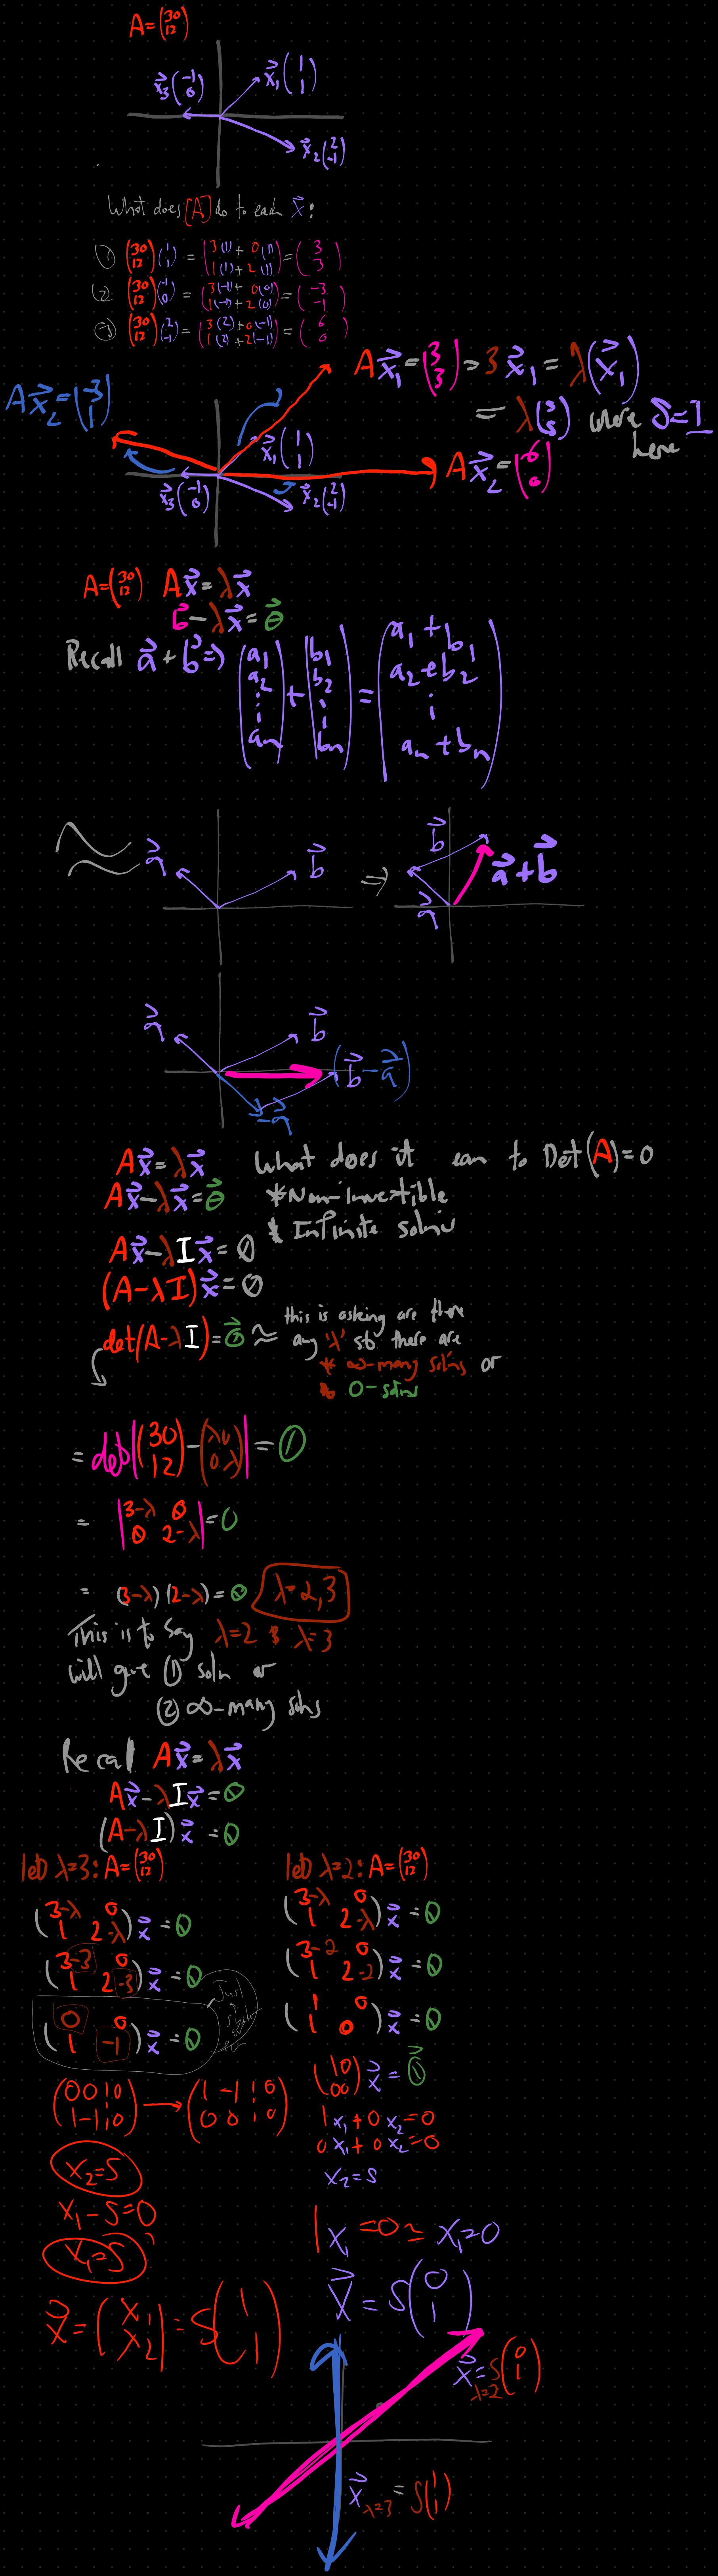 A = (3 0
1 2)
x⃗₃ (-1
0)
x⃗₁ (1
1)
x⃗₂ (2
-1)
What does [A] do to each x⃗?
① (3 0
1 2) (1
1) = (3(1) + 0(1)
1(1) + 2(1)) = (3
3)
② (3 0
1 2) (-1
0) = (3(-1) + 0(0)
1(-1) + 2(0)) = (-3
-1)
③ (3 0
1 2) (2
-1) = (3(2) + 0(-1)
1(2) + 2(-1)) = (6
0)
Ax⃗₁ = (3
3) = 3x⃗₁ = λ(x⃗₁)
= λ(s
s) where s=1
here
Ax⃗₂ = (-3
1)
x⃗₁ (1
1)
Ax⃗₂ = (6
0)
x⃗₃ (-1
0)
x⃗₂ (2
-1)
A = (3 0
1 2) Ax⃗ = λx⃗
b⃗ - λx⃗ = 0⃗
Recall a⃗ + b⃗ ⇒ (a₁
a₂
⋮
aₙ) + (b₁
b₂
⋮
bₙ) = (a₁ + b₁
a₂ + b₂
⋮
aₙ + bₙ)
a⃗ b⃗ ⇒ b⃗
a⃗ + b⃗
a⃗
a⃗ b⃗
(b⃗ - a⃗)
-a⃗
Ax⃗ = λx⃗
Ax⃗ - λx⃗ = 0⃗
Ax⃗ - λIx⃗ = 0
(A - λI)x⃗ = 0
What does it to Det(A) = 0
* Non-invertible
* Infinite solns
det(A - λI) = 0⃗ ≈ this is asking are there
any 'λ' st. there are
* ∞-many solns or
* 0-solns
= det|(3 0
1 2) - (λ 0
0 λ)| =
= |3-λ 0
0 2-λ| = 0
= (3-λ)(2-λ) = 0 λ = 2,3
This is to say λ=2 & λ=3
will give (1) soln or
(2) ∞-many solns
Recall Ax⃗ = λx⃗
Ax⃗ - λIx⃗ = 0
(A - λI)x⃗ = 0
let λ=3: A = (3 0
1 2)
(3-λ 0
1 2-λ) x⃗ = 0
(3-3 0
1 2-3) x⃗ = 0
(0 0
1 -1) x⃗ = 0
Just
a
system
(0 0 | 0
1 -1 | 0) → (1 -1 | 0
0 0 | 0)
x₂ = s
x₁ - s = 0
x₁ = s
x⃗ = (x₁
x₂) = s(1
1)
let λ=2: A = (3 0
1 2)
(3-λ 0
1 2-λ) x⃗ = 0
(3-2 0
1 2-2) x⃗ = 0
(1 0
1 0) x⃗ = 0
(1 0
0 0) x⃗ = 0⃗
1x₁ + 0x₂ = 0
0x₁ + 0x₂ = 0
x₂ = s
1x₁ = 0 ≈ x₁ = 0
x⃗ = s(0
1)
x⃗ λ=2 = s(0
1)
x⃗ λ=3 = s(1
1)